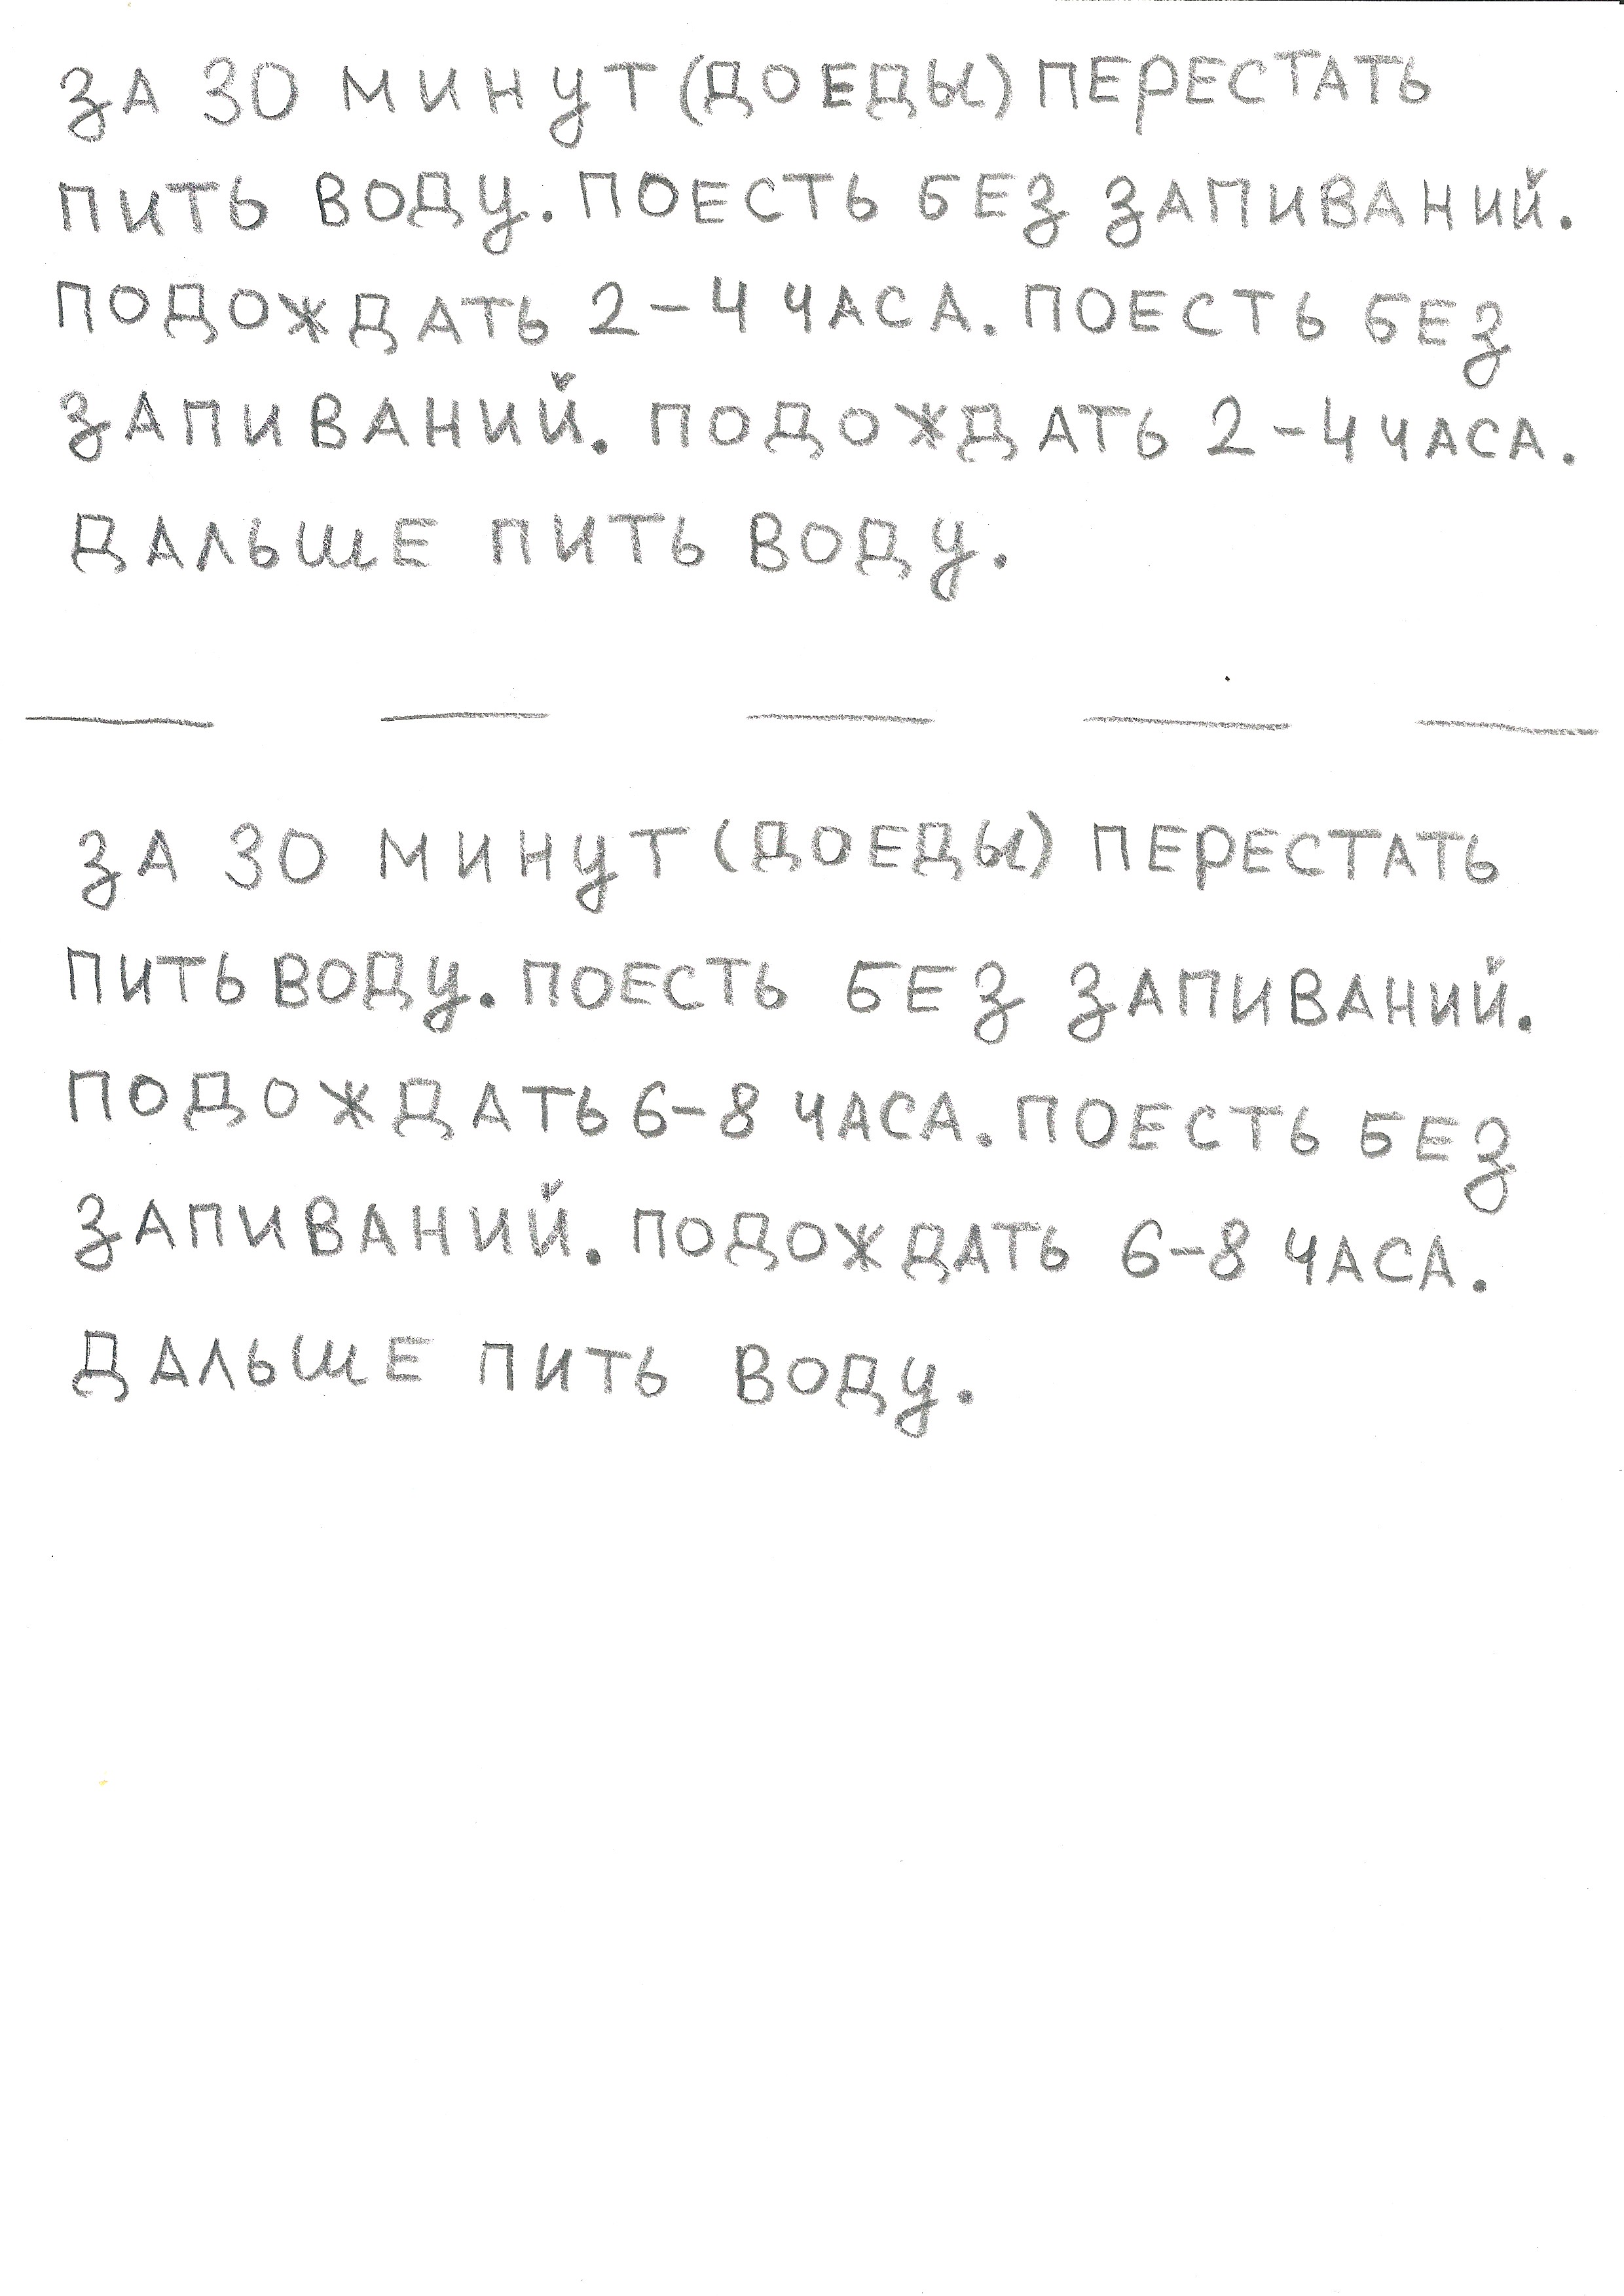 ЗА 30 МИНУТ (ДОЕДЫ) ПЕРЕСТАТЬ
ПИТЬ ВОДУ. ПОЕСТЬ БЕЗ ЗАПИВАНИЙ.
ПОДОЖДАТЬ 2-4 ЧАСА. ПОЕСТЬ БЕЗ
ЗАПИВАНИЙ. ПОДОЖДАТЬ 2-4 ЧАСА.
ДАЛЬШЕ ПИТЬ ВОДУ.
ЗА 30 МИНУТ (ДОЕДЫ) ПЕРЕСТАТЬ
ПИТЬ ВОДУ. ПОЕСТЬ БЕЗ ЗАПИВАНИЙ.
ПОДОЖДАТЬ 6-8 ЧАСА. ПОЕСТЬ БЕЗ
ЗАПИВАНИЙ. ПОДОЖДАТЬ 6-8 ЧАСА.
ДАЛЬШЕ ПИТЬ ВОДУ.